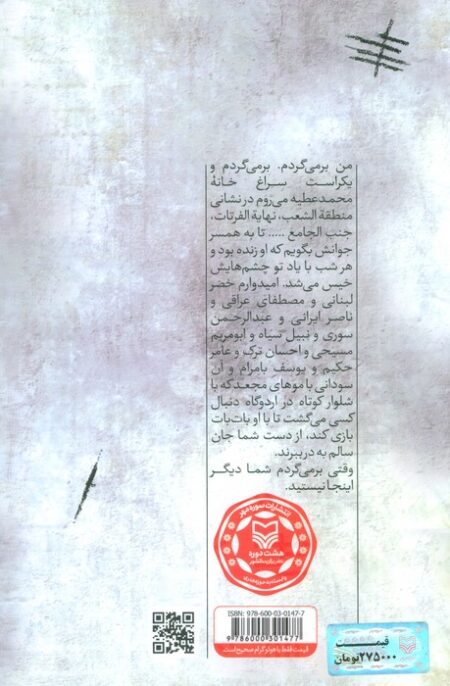 من برمی‌گردم، برمی‌گردم و
یکراست سراغ خانهٔ
محمدعطیه می‌روم در نشانی
منطقة الشعب، نهایة الفرتات،
جنب الجامع ..... تا به همسر
جوانش بگویم که او زنده بود و
هر شب با یاد تو چشم‌هایش
خیس می‌شد. امیدوارم خضر
لبنانی و مصطفای عراقی و
ناصر ایرانی و عبدالرحمن
سوری و نبیل سیاه و ابومریم
مسیحی و احسان ترک و عامر
حکیم و یوسف بامرام و آن
سودانی با موهای مجعد که با
شلوار کوتاه در اردوگاه دنبال
کسی می‌گشت تا با او بات‌بات
بازی کند، از دست شما جان
سالم به در ببرند.
وقتی برمی‌گردم شما دیگر
اینجا نیستید.
انتشارات سوره مهر
هشت دوره
وابسته به حوزه هنری
ISBN: 978-600-03-0147-7
9 786000 301477
قیمت فقط با هولوگرام صحیح است
قیمت
۲۷۵۰۰۰ تومان